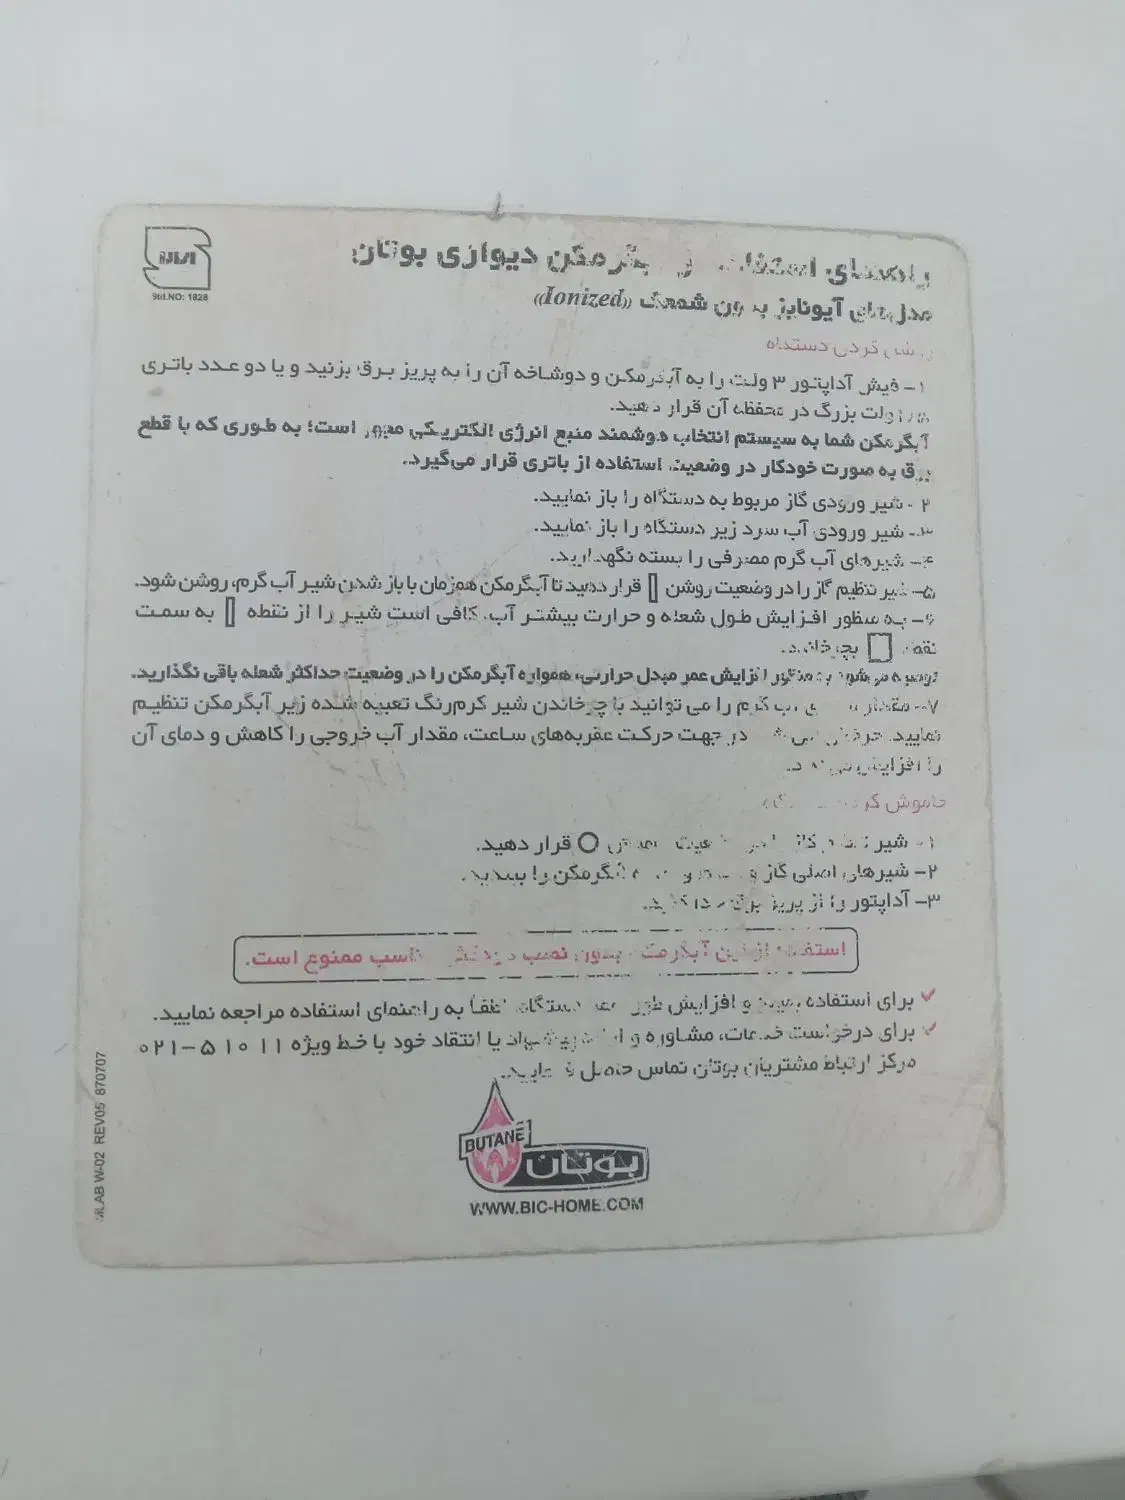 راهنمای استفاده از آبگرمکن دیواری بوتان
مدل‌های آیونایز بدون شمعک «Ionized»
Std.NO: 1828
روشن کردن دستگاه
۱- فیش آداپتور ۳ ولت را به آبگرمکن و دوشاخه آن را به پریز برق بزنید و یا دو عدد باتری
۱/۵ ولت بزرگ در محفظه آن قرار دهید.
آبگرمکن شما به سیستم انتخاب هوشمند منبع انرژی الکتریکی مجهز است؛ به طوری که با قطع
برق به صورت خودکار در وضعیت استفاده از باتری قرار می‌گیرد.
۲- شیر ورودی گاز مربوط به دستگاه را باز نمایید.
۳- شیر ورودی آب سرد زیر دستگاه را باز نمایید.
۴- شیرهای آب گرم مصرفی را بسته نگهدارید.
۵- شیر تنظیم گاز را در وضعیت روشن قرار دهید تا آبگرمکن همزمان با باز شدن شیر آب گرم، روشن شود.
۶- به منظور افزایش طول شعله و حرارت بیشتر آب، کافی است شیر را از نقطه به سمت
نقطه بچرخانید.
توصیه می‌شود به منظور افزایش عمر مبدل حرارتی، همواره آبگرمکن را در وضعیت حداکثر شعله باقی نگذارید.
۷- مقدار آب گرم را می توانید با چرخاندن شیر کرم‌رنگ تعبیه شده زیر آبگرمکن تنظیم
نمایید. در جهت حرکت عقربه‌های ساعت، مقدار آب خروجی را کاهش و دمای آن
را افزایش می‌دهد.
خاموش کردن
۱- شیر قرار دهید.
۲- شیرهای اصلی گاز و آبگرمکن را ببندید.
۳- آداپتور را از پریز برق جدا کنید.
استفاده از این آبگرمکن بدون نصب دودکش مناسب ممنوع است.
برای استفاده بهینه و افزایش طول عمر دستگاه، لطفاً به راهنمای استفاده مراجعه نمایید.
برای درخواست خدمات، مشاوره و پیشنهاد یا انتقاد خود با خط ویژه ۵۱۰۱۱-۰۲۱
مرکز ارتباط مشتریان بوتان تماس حاصل فرمایید.
BUTANE
بوتان
WWW.BIC-HOME.COM
W-02 REV05 870707